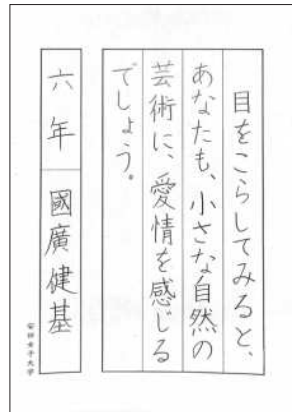 目をこらしてみると、
あなたも、小さな自然の
芸術に、愛情を感じる
でしょう。
六年 國廣健基
安田女子大学